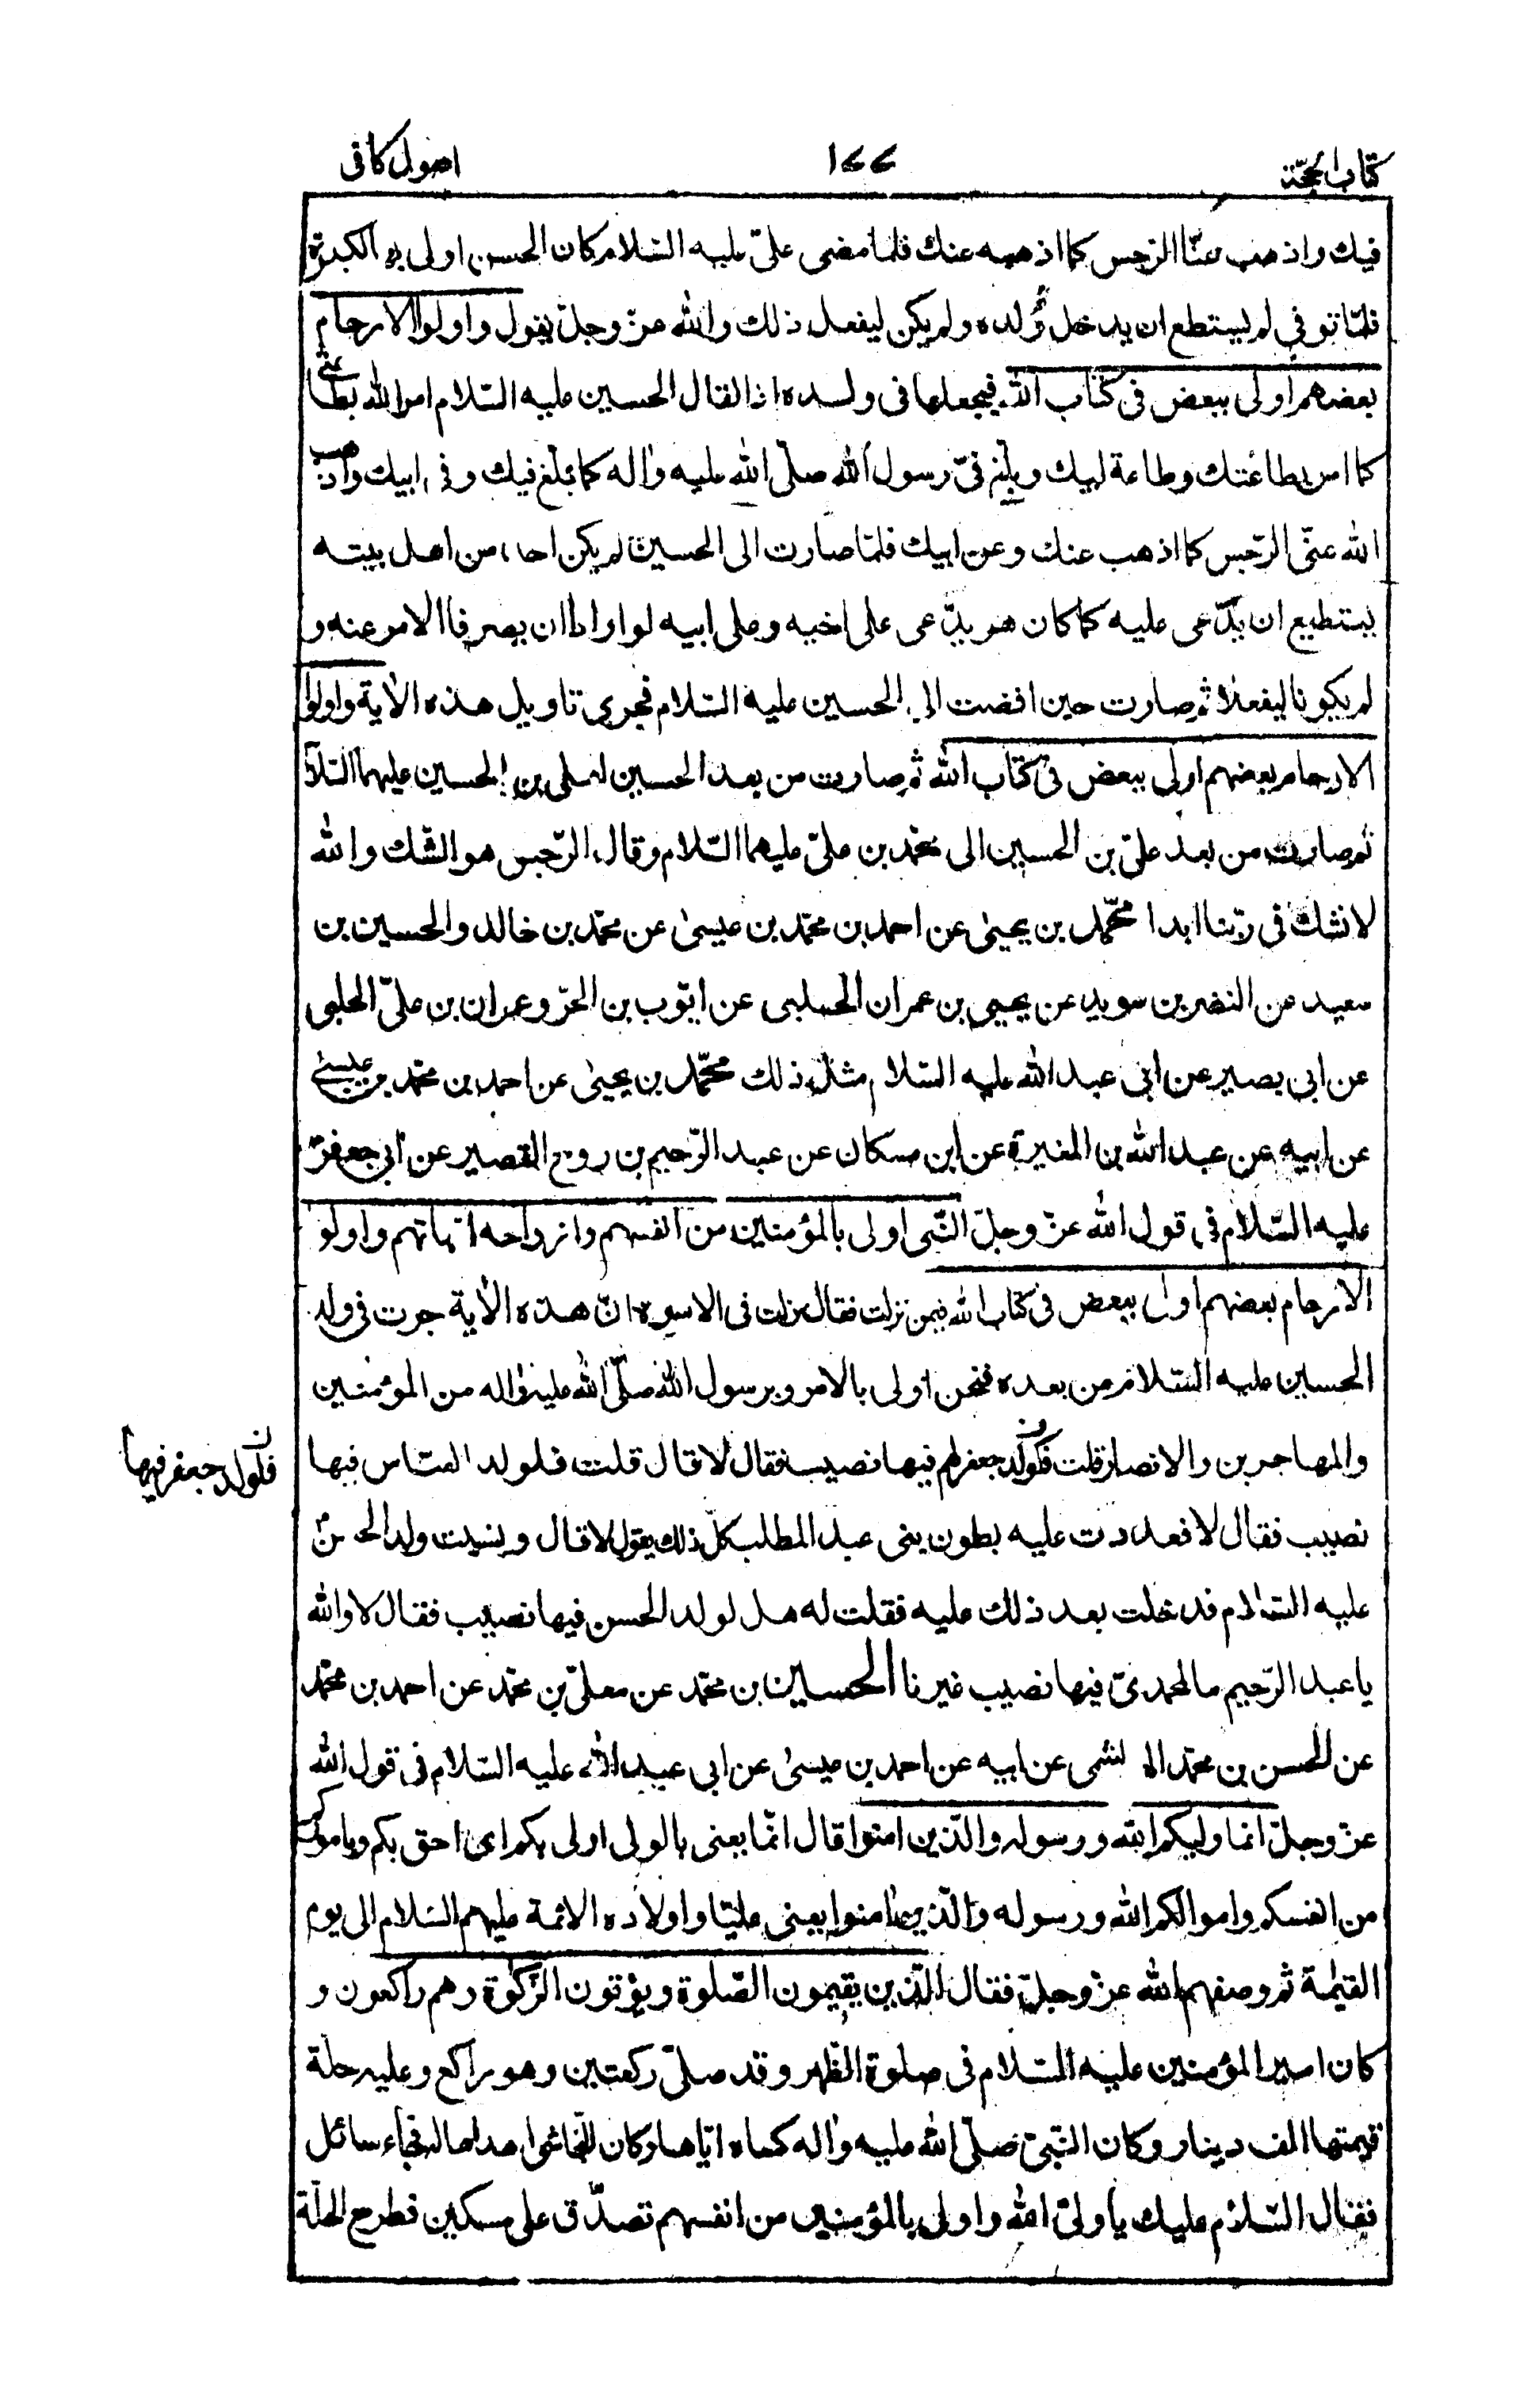 كتاب الحجّة
١٧٧
اصول كافى
فيك واذهب عنّا الرّجس كما اذهبه عنك فلما مضى علىّ عليه السّلام كان الحسن اولى بها لكبره
فلمّا توفى لم يستطع ان يدخل وُلده ولم يكن ليفعل ذلك والله عزّ وجلّ يقول واولوا الارحام
بعضهم اولى ببعض فى كتاب الله فيجعلها فى ولده اذا لقال الحسين عليه السّلام امر الله بطاعتى
كما امر بطاعتك وطاعة ابيك وبلّغ فىّ رسول الله صلّى الله عليه واٰله كما بلّغ فيك وفى ابيك واذهب
الله عنّى الرّجس كما اذهب عنك وعن ابيك فلمّا صارت الى الحسين لم يكن احد من اهل بيته
يستطيع ان يدّعى عليه كما كان هو يدّعى على اخيه وعلى ابيه لو ارادا ان يصرفا الامر عنه و
لم يكونا ليفعلا ثم صارت حين افضت الى الحسين عليه السّلام فجرى تاويل هذه الاٰية واولوا
الارحام بعضهم اولى ببعض فى كتاب الله ثم صارت من بعد الحسين لعلى بن الحسين عليهما السّلام
ثم صارت من بعد علىّ بن الحسين الى محمّد بن علىّ عليهما السّلام وقال الرّجس هو الشّك والله
لا نشك فى ربّنا ابدا محمّد بن يحيىٰ عن احمد بن محمّد بن عيسىٰ عن محمّد بن خالد والحسين بن
سعيد عن النضر بن سويد عن يحيى بن عمران الحلبى عن ايّوب بن الحرّ وعمران بن علىّ الحلبى
عن ابى بصير عن ابى عبد الله عليه السّلام مثل ذلك محمّد بن يحيىٰ عن احمد بن محمّد بن عيسىٰ
عن ابيه عن عبد الله بن المغيرة عن ابن مسكان عن عبد الرّحيم بن روح القصير عن ابى جعفر
عليه السّلام فى قول الله عزّ وجلّ النّبى اولى بالمؤمنين من انفسهم وازواجه امهاتهم واولو
الارحام بعضهم اولى ببعض فى كتاب الله فيمن نزلت فقال نزلت فى الامرة انّ هذه الاٰية جرت فى ولد
الحسين عليه السّلام من بعده فنحن اولى بالامر وبرسول الله صلّى الله عليه واٰله من المؤمنين
والمهاجرين والانصار قلت فلولد جعفر لهم فيها نصيب فقال لا قال قلت فلولد العبّاس فيها
ن
فلولد جعفر فيها
نصيب فقال لا فعددت عليه بطون بنى عبد المطلب كل ذلك يقول لا قال ونسيت ولد الحسن
عليه السّلام فدخلت بعد ذلك عليه فقلت له هل لولد الحسن فيها نصيب فقال لا والله
يا عبد الرّحيم ما لمحمدىّ فيها نصيب غيرنا الحسين بن محمّد عن معلّى بن محمّد عن احمد بن محمّد
عن الحسن بن محمّد الهاشمى عن ابيه عن احمد بن عيسىٰ عن ابى عبد الله عليه السّلام فى قول الله
عزّ وجلّ انما وليكم الله ورسوله والّذين امنوا قال انّما يعنى بالولى اولى بكم اى احق بكم وباموركم
من انفسكم واموالكم الله ورسوله والّذين اٰمنوا يعنى عليّا واولاده الائمة عليهم السّلام الى يوم
القيٰمة ثم وصفهم الله عزّ وجلّ فقال الّذين يقيمون الصّلوة ويؤتون الزّكوٰة وهم راكعون و
كان امير المؤمنين عليه السّلام فى صلوة الظّهر وقد صلّى ركعتين وهو راكع وعليه حلّة
قيمتها الف دينار وكان النّبىّ صلّى الله عليه واٰله كساه ايّاها وكان النّجاشى اهداها له فجاء سائل
فقال السّلام عليك يا ولىّ الله واولى بالمؤمنين من انفسهم تصدّق على مسكين فطرح الحلّة